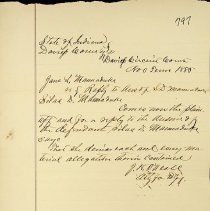 797
State of Indiana
Daviess County
Daviess Circuit Court
No 6 Term 1885
Jane L. Mamaduke
vs Reply to Ans of S D Mamaduke
Silas D. Mamaduke
Comes now the plain
tiff and for a reply to the Answer of
the defendant Silas D Mamaduke
says
That she denies each and every ma
terial allegation therein contained
Atty for Plff